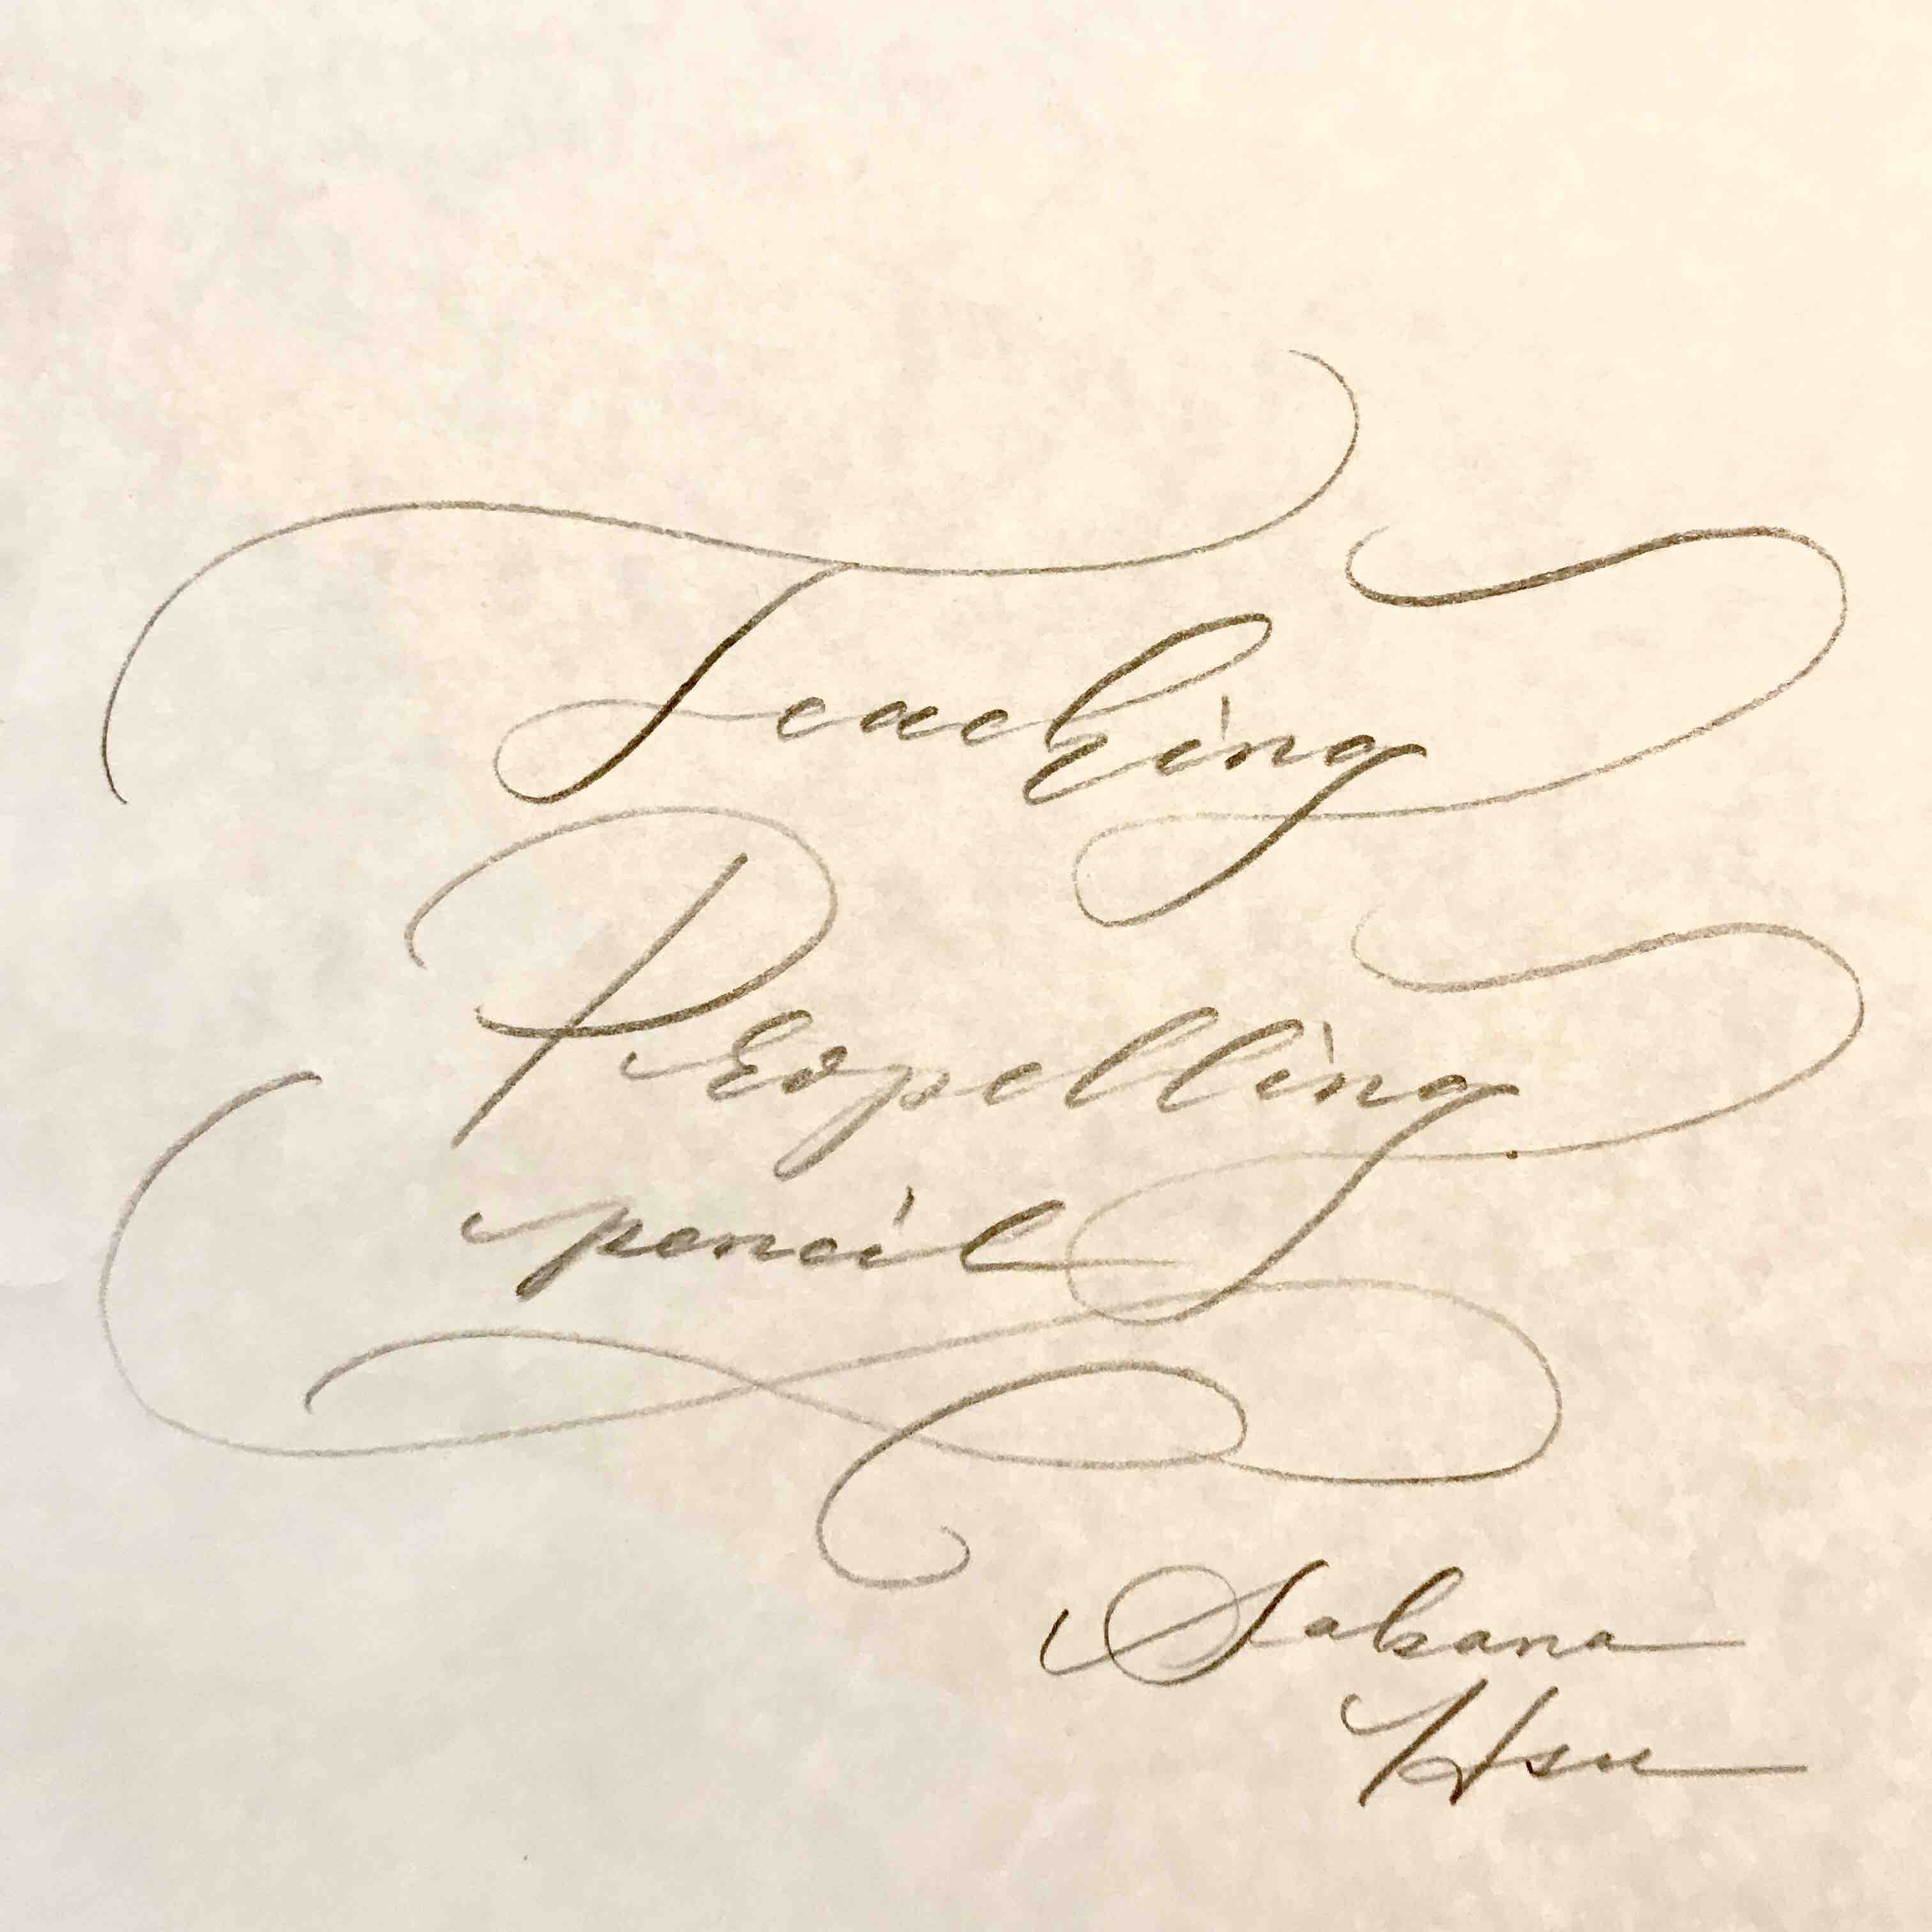 Teaching
Propelling
pencil
Sakana
Hsu